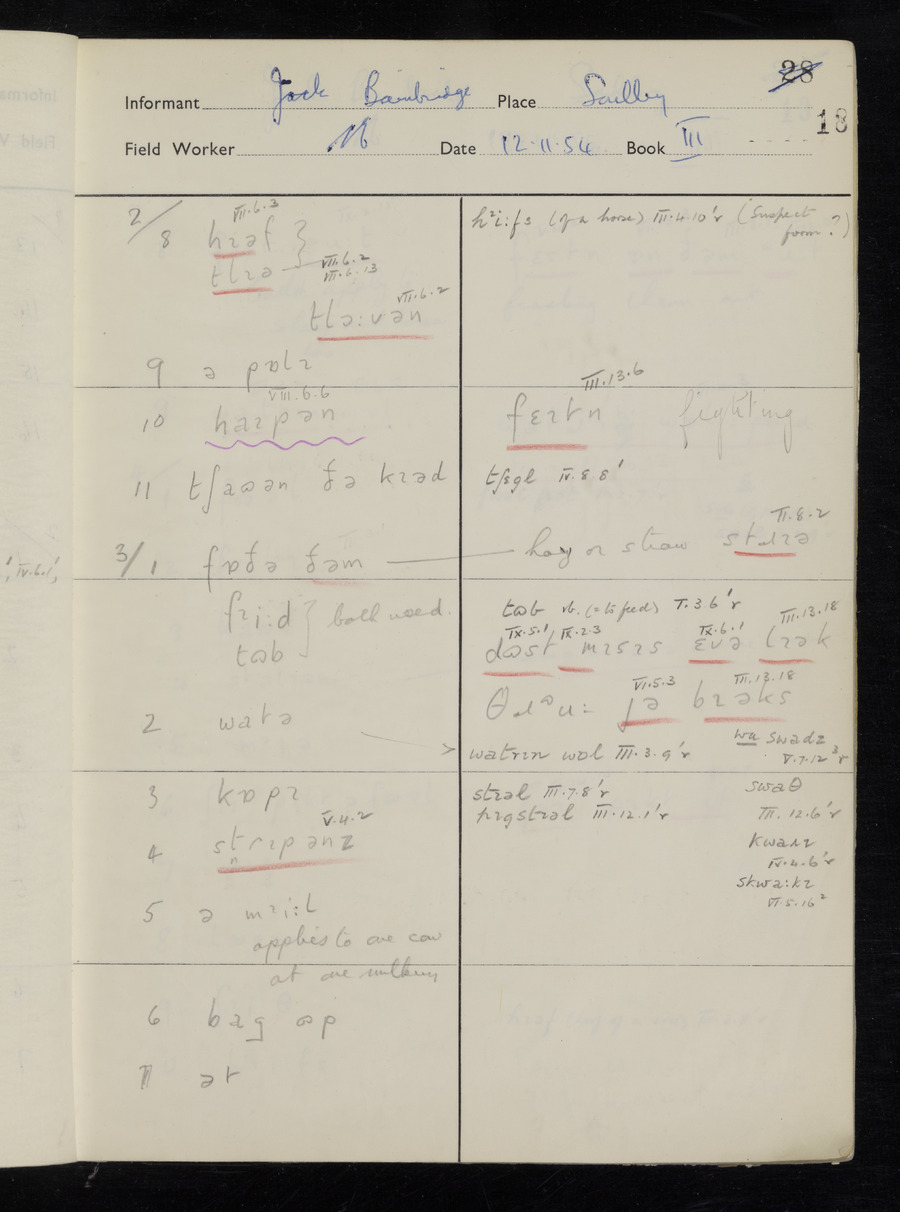 28
Informant Jack Bainbridge Place Soulby
18
Field Worker Date 12.11.54 Book III
2/8 hɪəf VII.6.3
tlɪə VII.6.2
VII.6.13
tlə:vən VII.6.2
hᵊi:fs (of a horse) III.4.10'r (Suspect form?)
9 ə pɒlɪ
10 haɪpən VIII.6.6
fɛɪtn III.13.6 fighting
11 tʃaʊən ðə kɪəd
tʃɛgl IV.8.8'
3/1 fɒðə ðəm
hay or straw II.8.2
fɪi:d } both used.
tʊb
tʊb vb. (= to feed) I.3.6'r
dʊst IX.5.1 mɪsɪs IX.2.3 ɛvə IX.6.1 lɪək III.13.18
jə VI.5.3 bɪəks III.13.18
2 watə
watrɪn wɒl III.3.9'r
wa swadz V.7.12³r
3 kɒpɪ
stɪəl III.7.8'r
swaθ III.12.6'r
pɪgstɪəl III.12.1'r
4 strɪpənz V.4.2
kwaɪɪ IV.4.6'r
skwa:kɪ VI.5.16²
5 ə mɪi:l
applies to one cow
at one milking
6 bag ʊp
7 ət